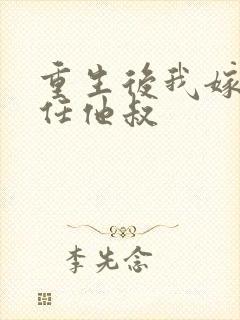 重生後我嫁
任他叔
李先念